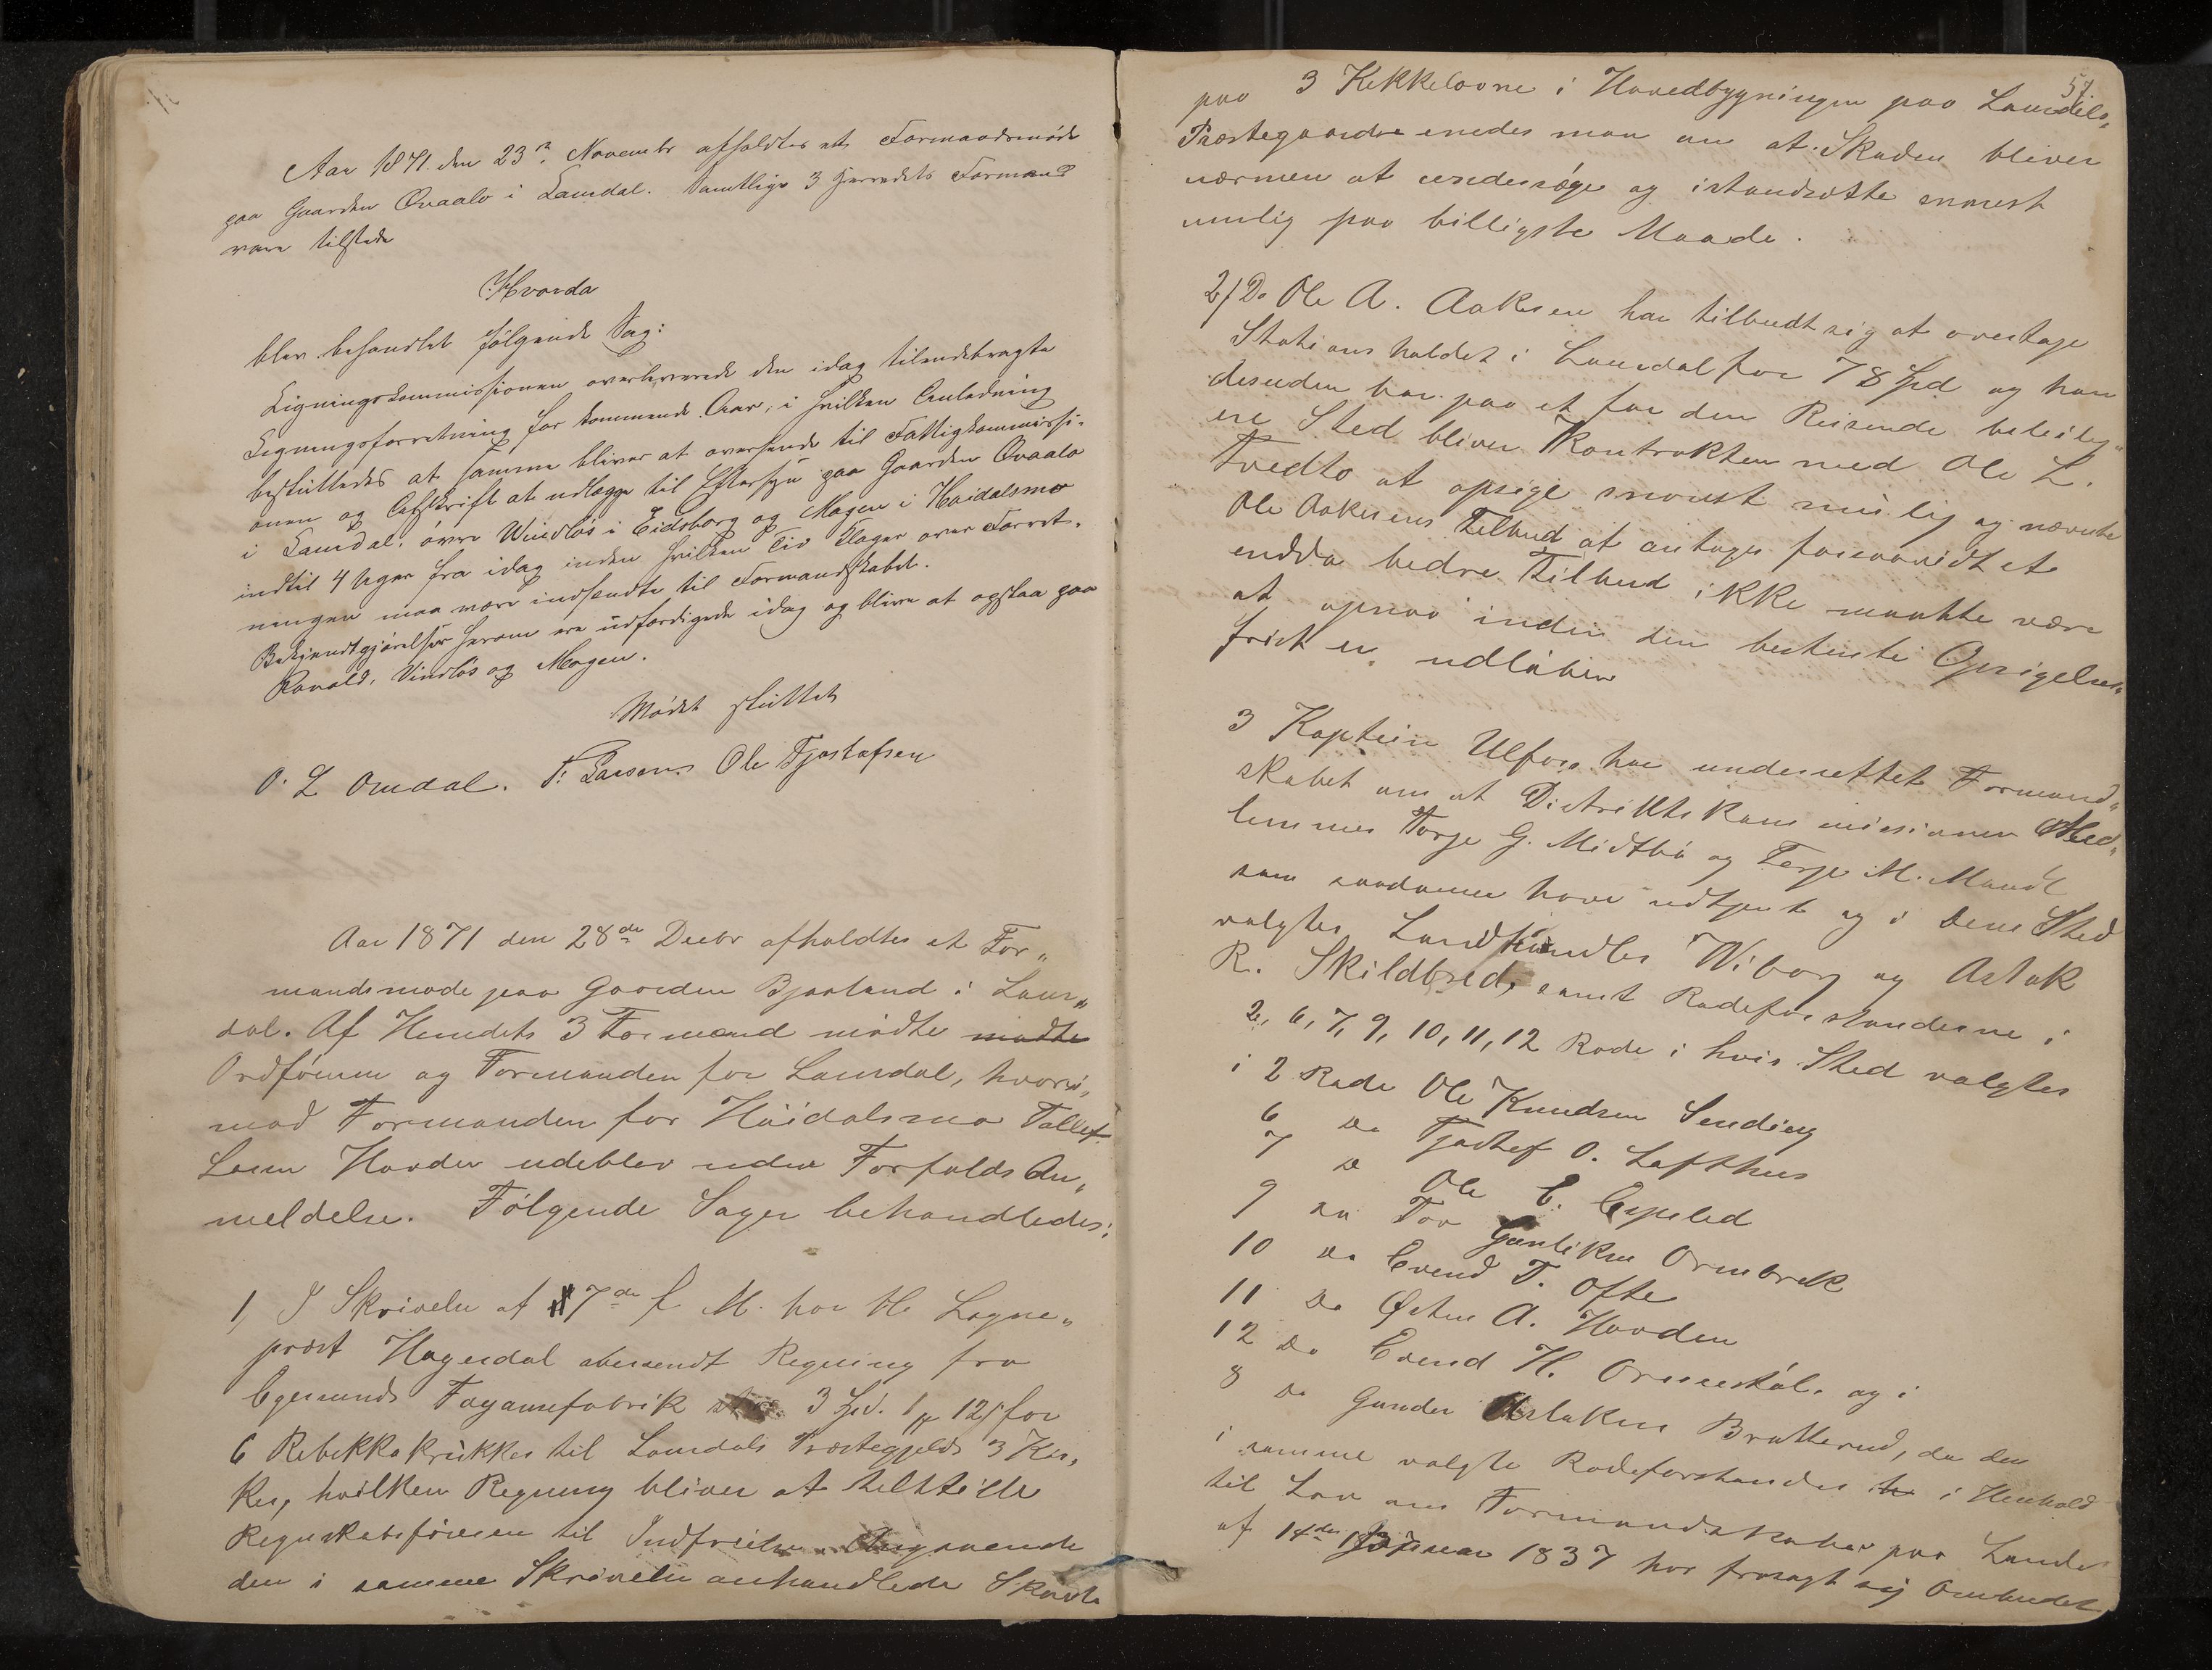 Aar 1871. den 23de Novembr afholdtes ett Formandsmøde
paa Gaarden Ovaale i Laurdal. Samtlige 3 Herredets Formænd
vare tilstede
Hvorda
blev behandlet følgende Sag:
Ligningskommissionen overleverede den idag tilendebragte
Ligningsforretning for kommende Aar, i hvilken Anledning
besluttedes at samme bliver at oversende til Fattigkommissi-
onen og Afskrift at udlægge til Eftersyn paa Gaarden Ovaale
i Laurdal, øvre Windlös i Eidsborg og Mogen i Høidalsmo
indtil 4 Uger fra idag inden hvilken Tid Klager over Forret-
ningen maa være indsendte til Formandskabet.
Bekjendtgjørelser herom ere udfærdigede idag og blive at opslaa paa
Ravald, Vindlös og Mogen.
Mödet sluttet
O. L Omdal. T. Larsen Ole Tjostofsen
Aar 1871 den 28de Decbr afholdtes et For„
mandsmøde paa Gaarden Bjaaland i Laur„
dal. Af Herredets 3 Formænd mødte mødte
Ordføreren og Formanden for Laurdal, hvori„
mod Formanden for Höidalsmo Tallef
Larsen Hovden udeblev uden Forfalds An„
meldelse. Følgende Sager behandledes:
1, I Skrivelse af 7de f. M. har Hr Sogne„
præst Hagerdal oversendt Regning fra
Egersunds Fayancefabrik 3 Spd. 1 12 for
6 Rebekkakrukker til Laurdals Præstegjelds 3 Kir„
ker, hvilken Regning bliver at tilstille
Regnskabsföreren til Indfrielse. Angaaende
den i samme Skrivelse omhandlede Skade
57
paa 3 Kakkelovne i Hovedbygningen paa Laurdals„
Præstegaarde enedes man om at Skaden bliver
nærmere at undersøge og istandsætte snarest
mulig paa billigste Maade.
2/ Da Ole A. Aakesen har tilbudt sig at overtage
Stationsholdet i Laurdal for 78 Spd og han
desuden bor paa et for den Reisende beleilig„
ere Sted bliver Kontrakten med Ole L.
Tvedto at opsige snarest mulig og nævnte
Ole Aakesens Tilbud at antages forsaavidt et
endda bedre Tilbud ikke maatte være
at opnaa inden den bestemte Opsigelses„
frist er udløben
3 Kaptein Ulfers har underrettet Formand„
skabet om at Distriktskommissionen Med„
lemmer Torje G. Midtbö og Terje M. Mandt
som saadanne have udtjent og i Deres Sted
valgtes Landhandler Wiborg og Aslak
R. Skildbred, samt Rodeforstanderne i
2, 6, 7, 9, 10, 11, 12 Rode i hvis Sted valgtes
i 2 Rode Ole Knudsen Sending
6 Do Tjostef O. Lofthus
7 Do Ole E. Espelid
9 Do Tor Gunleiksen Ormbrek
10 Do Evend T. Ofte
11 Do Østen A. Hovden
12 Do Evend H. Ormestöl. og i
8 Do Gunder Aslaksen Bratterud, da den
i samme valgte Rodeforstander h i Henhold
til Lov om Formandskaber paa Landet
af 14de Januar 1837 har frasagt sig Ombudet